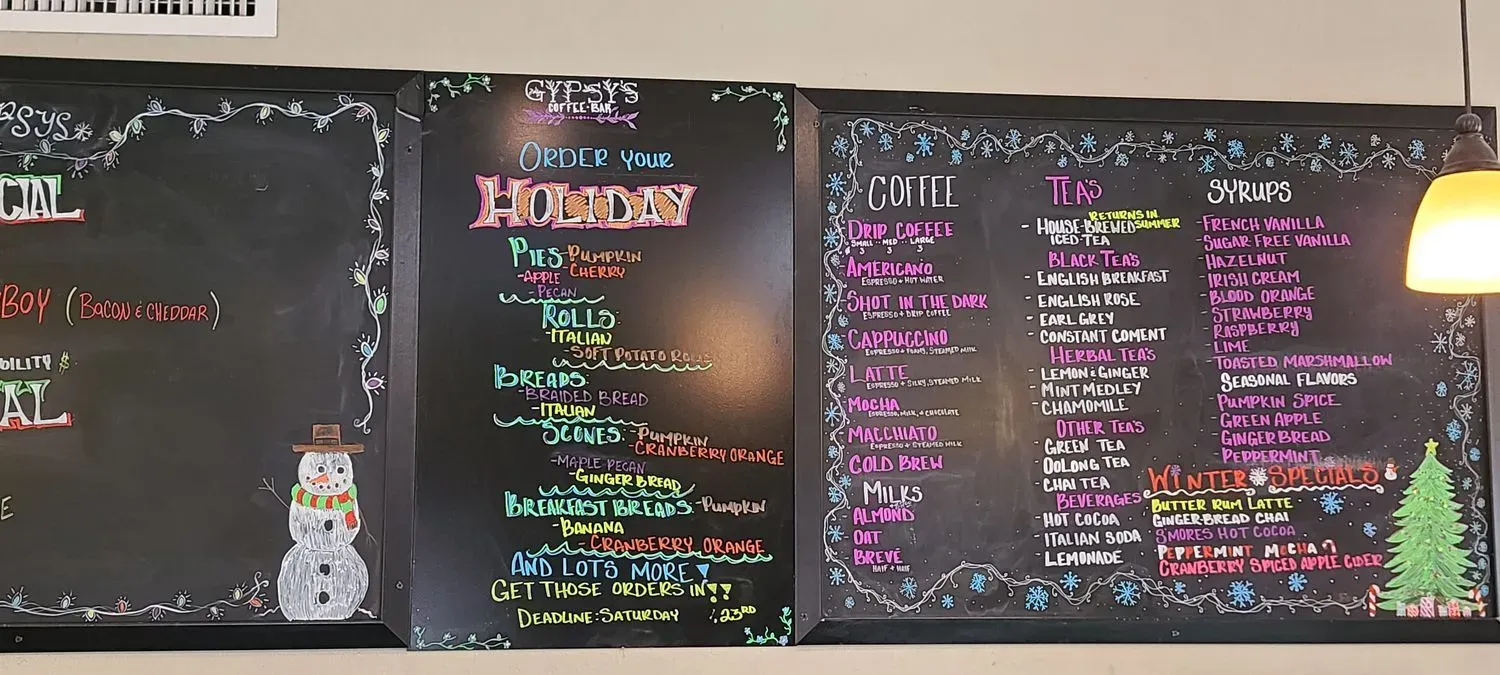 CIAL
BOY (BACON & CHEDDAR)
BILITY $
AL
E
GYPSY'S
COFFEE·BAR
ORDER YOUR
HOLIDAY
PIES -PUMPKIN
-APPLE -CHERRY
-PECAN
ROLLS:
-ITALIAN
-SOFT POTATO ROLLS
BREADS:
-BRAIDED BREAD
-ITALIAN
SCONES: -PUMPKIN
-CRANBERRY ORANGE
-MAPLE PECAN
-GINGER BREAD
BREAKFAST BREADS: -PUMPKIN
-BANANA
-CRANBERRY ORANGE
AND LOTS MORE
GET THOSE ORDERS IN!!
DEADLINE: SATURDAY 23RD
COFFEE
DRIP COFFEE
SMALL ·· MED ·· LARGE
AMERICANO
ESPRESSO + HOT WATER
SHOT IN THE DARK
ESPRESSO + DRIP COFFEE
CAPPUCCINO
ESPRESSO + FOAMY, STEAMED MILK
LATTE
ESPRESSO + SILKY, STEAMED MILK
MOCHA
ESPRESSO, MILK, & CHOCOLATE
MACCHIATO
ESPRESSO + STEAMED MILK
COLD BREW
MILKS
ALMOND
OAT
BREVÉ
HALF + HALF
TEAS
RETURNS IN
- HOUSE-BREWED SUMMER
ICED TEA
BLACK TEA'S
- ENGLISH BREAKFAST
- ENGLISH ROSE
- EARL GREY
- CONSTANT COMENT
HERBAL TEA'S
- LEMON & GINGER
- MINT MEDLEY
- CHAMOMILE
OTHER TEA'S
- GREEN TEA
- OOLONG TEA
- CHAI TEA
BEVERAGES
- HOT COCOA
- ITALIAN SODA
- LEMONADE
SYRUPS
- FRENCH VANILLA
- SUGAR FREE VANILLA
- HAZELNUT
- IRISH CREAM
- BLOOD ORANGE
- STRAWBERRY
- RASPBERRY
- LIME
- TOASTED MARSHMALLOW
SEASONAL FLAVORS
- PUMPKIN SPICE
- GREEN APPLE
- GINGERBREAD
- PEPPERMINT
WINTER SPECIALS
BUTTER RUM LATTE
GINGER-BREAD CHAI
S'MORES HOT COCOA
PEPPERMINT MOCHA
CRANBERRY SPICED APPLE CIDER